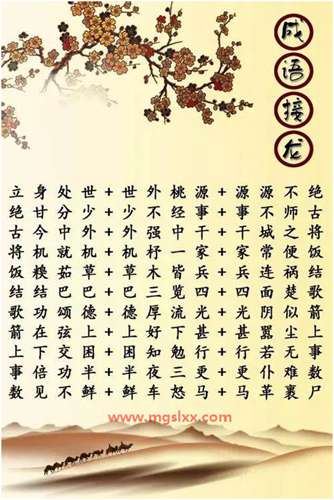 成语接龙
立身处世+世外桃源+源源不绝
绝甘分少+少不经事+事不师古
古今中外+外强中干+干城之将
将机就机+机杼一家+家常便饭
饭糗茹草+草木皆兵+兵连祸结
结结巴巴+巴三览四+四面楚歌
歌功颂德+德厚流光+光阴似箭
箭在弦上+上好下甚+甚嚣尘上
上下交困+困知勉行+行若无事
事倍功半+半夜三更+更仆难数
数见不鲜+鲜车怒马+马革裹尸
www.mgslxx.com